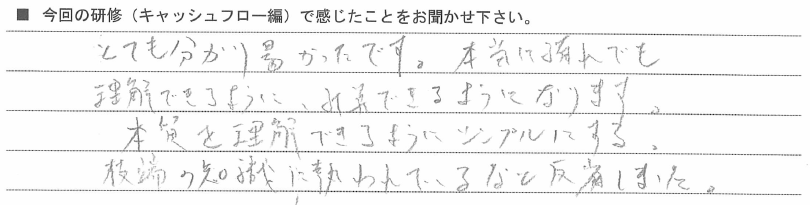 ■ 今回の研修（キャッシュフロー編）で感じたことをお聞かせ下さい。
とても分かり易かったです。本当に誰れでも
理解できるように、計算できるようになります。
本質を理解できるようにシンプルにする。
枝端の知識に執われているなと反省しました。